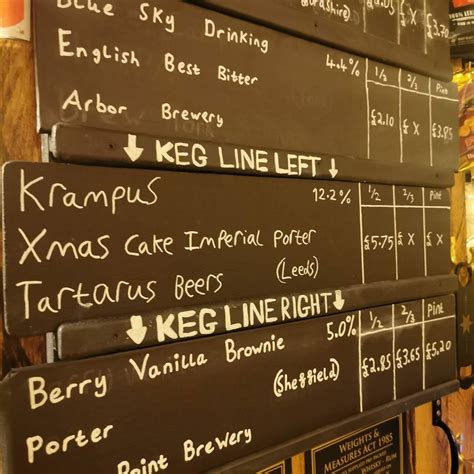 Blue Sky Drinking
4.4% 1/2 2/3 Pint
English Best Bitter
Arbor Brewery £2.10 £ X £3.85
↓ KEG LINE LEFT ↓
Krampus 12.2% 1/2 2/3 Pint
Xmas Cake Imperial Porter £5.75 £ X £ X
Tartarus Beers (Leeds)
↓ KEG LINE RIGHT ↓
Berry Vanilla Brownie 5.0% 1/2 2/3 Pint
Porter (Sheffield) £2.85 £3.65 £5.20
Point Brewery
WEIGHTS &
MEASURES ACT 1985